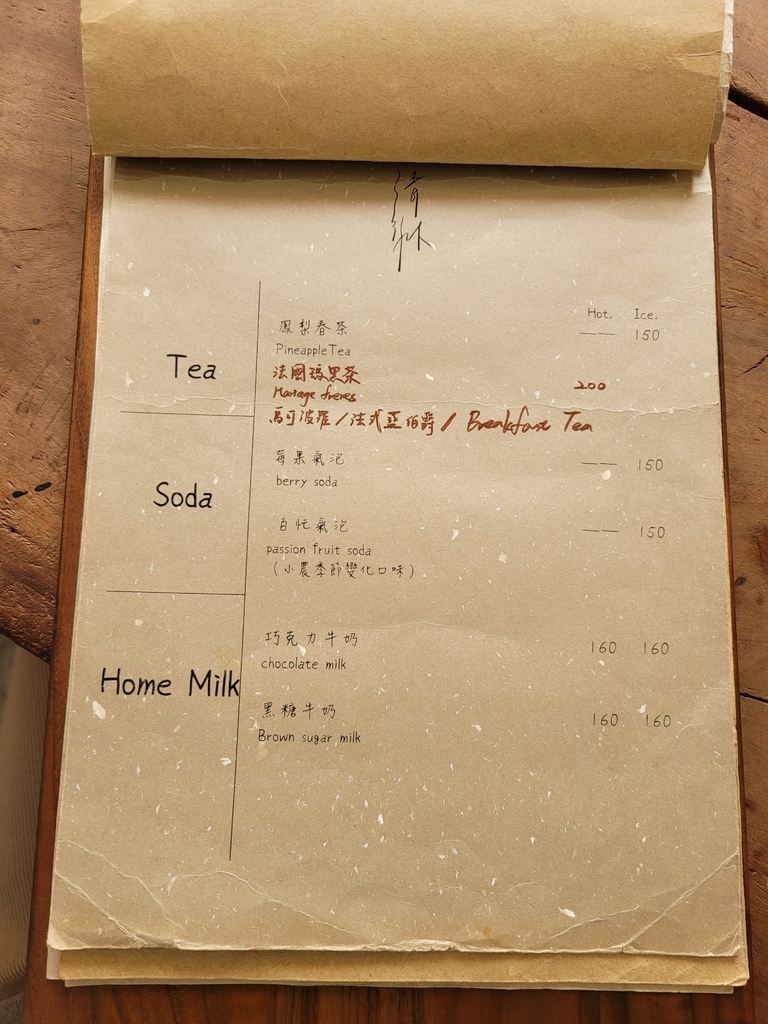 Hot. Ice.
鳳梨春茶 —— 150
PineappleTea
Tea
法國瑪黑茶 200
Mariage freres
馬可波羅/法式亞伯爵/ Breakfast Tea
莓果氣泡 —— 150
berry soda
Soda
百忙氣泡 —— 150
passion fruit soda
(小農季節變化口味)
巧克力牛奶 160 160
chocolate milk
Home Milk
黑糖牛奶 160 160
Brown sugar milk